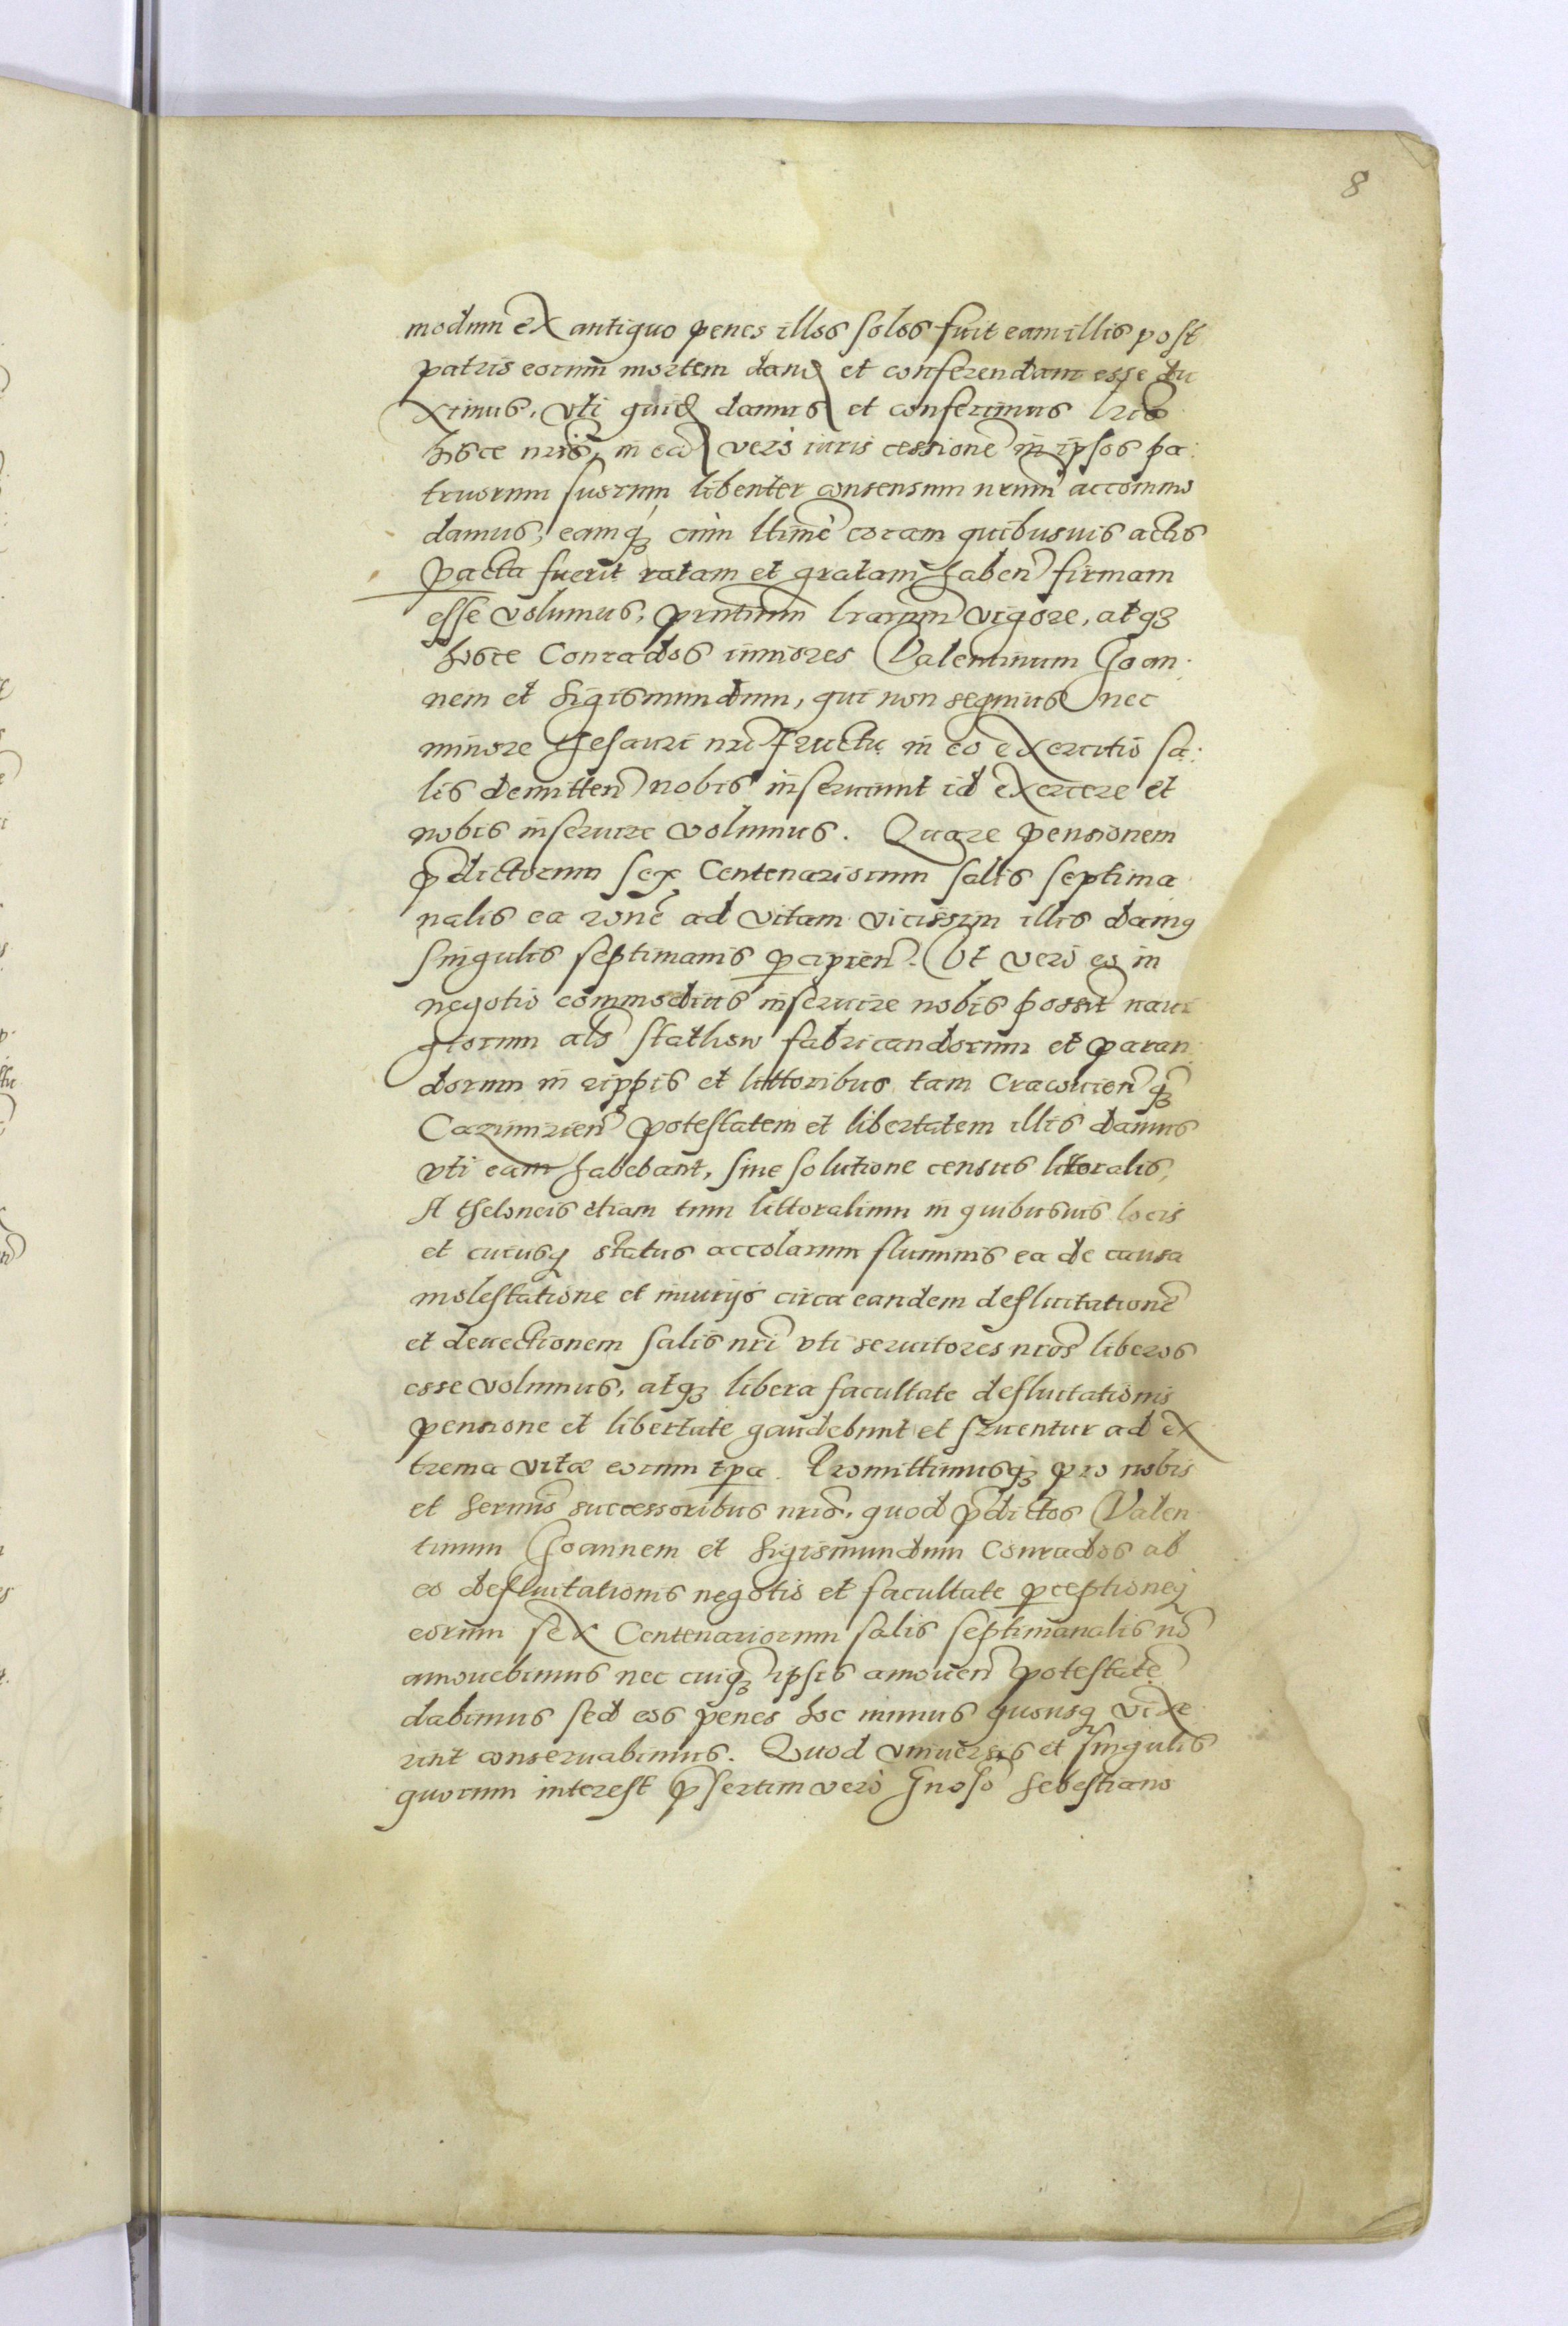 8
modum ex antiquo penes illos solos fuit eam illis post
patris eorum mortem dan̄d et conferendam esse du
ximus, vti quid̄ damus et conferimus lrīs
hisce nrīs, in ea vero iuris cessionē in ipsos pa:
truorum suorum libenter consensum nrūm accommo
damus, eamq́ꝫ cum lt̄imē coram quibusuis actis
ꝑacta fuerit ratam et gratam haben̄ firmam
esse volumus, pn̄tium lrārum vigore, atqꝫ
hosce Conrados iuniores Valentinum Joan:
nem et Sigismundum, qui non segnius nec
minore thesauri nrī fructu in eo exercitio sa:
lis demitten̄ nobis inseruiunt id exercere et
nobis inseruire volumus. Quare pensionem
p̄dictorum sex Centenariorum salis septima
nalis ea rōne ad vitam vicissim illis damꝰ
singulis septimanis ꝑcipien̄. Vt vero eo in
negotio commodius inseruire nobis possūt naui
giorum als̄ stathow fabricandorum et paran
dorum in rippis et littoribus tam Cracouien̄ qꝫ̄
Cazimirien̄ potestatem et libertatem illis damus
vti eam habebant, sine solutione census littoralis,
A theloneis etiam tum littoralium in quibusuis locis
et cuiusq status accolarum fluminis ea de causa
molestatione et iniurijs circa eandem defluitationē
et deuectionem salis nrī vti seruitores nrōs liberos
esse volumus, atqꝫ libera facultate defluitationis
pensione et libertate gaudebunt et fruentur ad ex
trema vitæ eorum tꝑa. Promittimusqꝫ pro nobis
et serm̄is successoribus nrīs, quod p̄dictos Valen
tinum Joannem et Sigismundum Conrados ab
eo defluitationis negotio et facultate ꝑceptioneq
eorum sex Centenariorum salis septimanalis nō
amouebimus nec cuiqꝫ̄ ipsos amouen̄ potestatē
dabimus sed eos penes hoc munus quousq vixe
rint conseruabimus. Quod vniuersis et singulis
quorum interest p̄sertim vero Gn̄oso Sebestiano